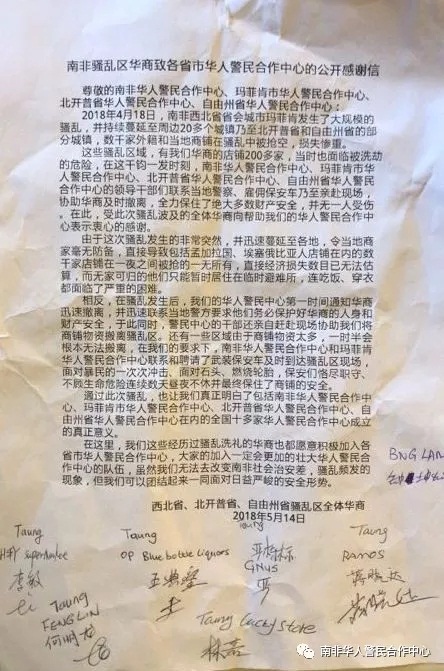 南非骚乱区华商致各省市华人警民合作中心的公开感谢信
尊敬的南非华人警民合作中心、玛菲肯市华人警民合作中心、
北开普省华人警民合作中心、自由州省华人警民合作中心:
2018年4月18日,南非西北省省会城市玛菲肯发生了大规模的
骚乱,并持续蔓延至周边20多个城镇乃至北开普省和自由省的部
分城镇,数千家外籍和当地商铺在骚乱中被抢空,损失惨重。
这些骚乱区域,有我们华商的店铺200多家,当时也面临被洗劫
的危险,在这千钧一发时刻,南非华人警民中心、玛菲肯华人警民
合作中心的领导干部们联系当地警察、雇佣保安乃至亲赴现场,
协助华商及时撤离,全力保住了绝大多数财产安全,并无一人受伤
。在此,受此次骚乱波及的全体华商向帮助我们的华人警民中心
表示衷心的感谢。
由于这次骚乱发生的非常突然,并迅速蔓延至各地,令当地商
家毫无防备,直接导致包括孟加拉国、埃塞俄比亚人店铺在内的数
千家店铺在一夜之间被抢的一无所有,直接经济损失数目已无法估
算,而无家可归的他们只能暂时居住在临时避难所,连吃饭、穿衣
都面临了严重的困难。
相反,在骚乱发生后,我们的华人警民中心第一时间通知华商
迅速撤离,并迅速联系当地警方要求他们务必保护好华商的人身和
财产安全,于此同时,警民中心的干部还亲自赶赴现场协助我们将
商铺物资搬离骚乱区。还有一些区域由于商铺物资太多,一时半会
根本无法搬离,在我们的要求下,南非华人警民合作中心和玛菲肯
华人警民合作中心联系和聘请了武装保安人员及时到达骚乱区现场,
面对暴民的一次次冲击、面对石头、燃烧轮胎,保安们恪尽职守、
不顾生命危险连续数天昼夜不休并最终保住了商铺的安全。
通过此次骚乱,也让我们真正明白了包括南非华人警民合作中
心、玛菲肯市华人警民合作中心、北开普省华人警民合作中心、自
由州省华人警民合作中心在内的全国十多家华人警民中心成立
的真正意义。
在这里,我们这些经历过骚乱洗礼的华商也都愿意积极加入各
省市华人警民中心,大家的加入一定会更加的壮大华人警民合作
中心的队伍,虽然我们无法去改变南非社会治安差,骚乱频发的
现象,但我们可以团结起来一同面对日益严峻的安全形势。
BNG LAN
西北省、北开普省、自由州省骚乱区全体华商
2018年5月14日
Taung
Taung
Taung
Taung
OP Blue bottle Liquors
GNUS
Ramos
Taung
FENG LIN
Taung Lucky Store
南非华人警民合作中心